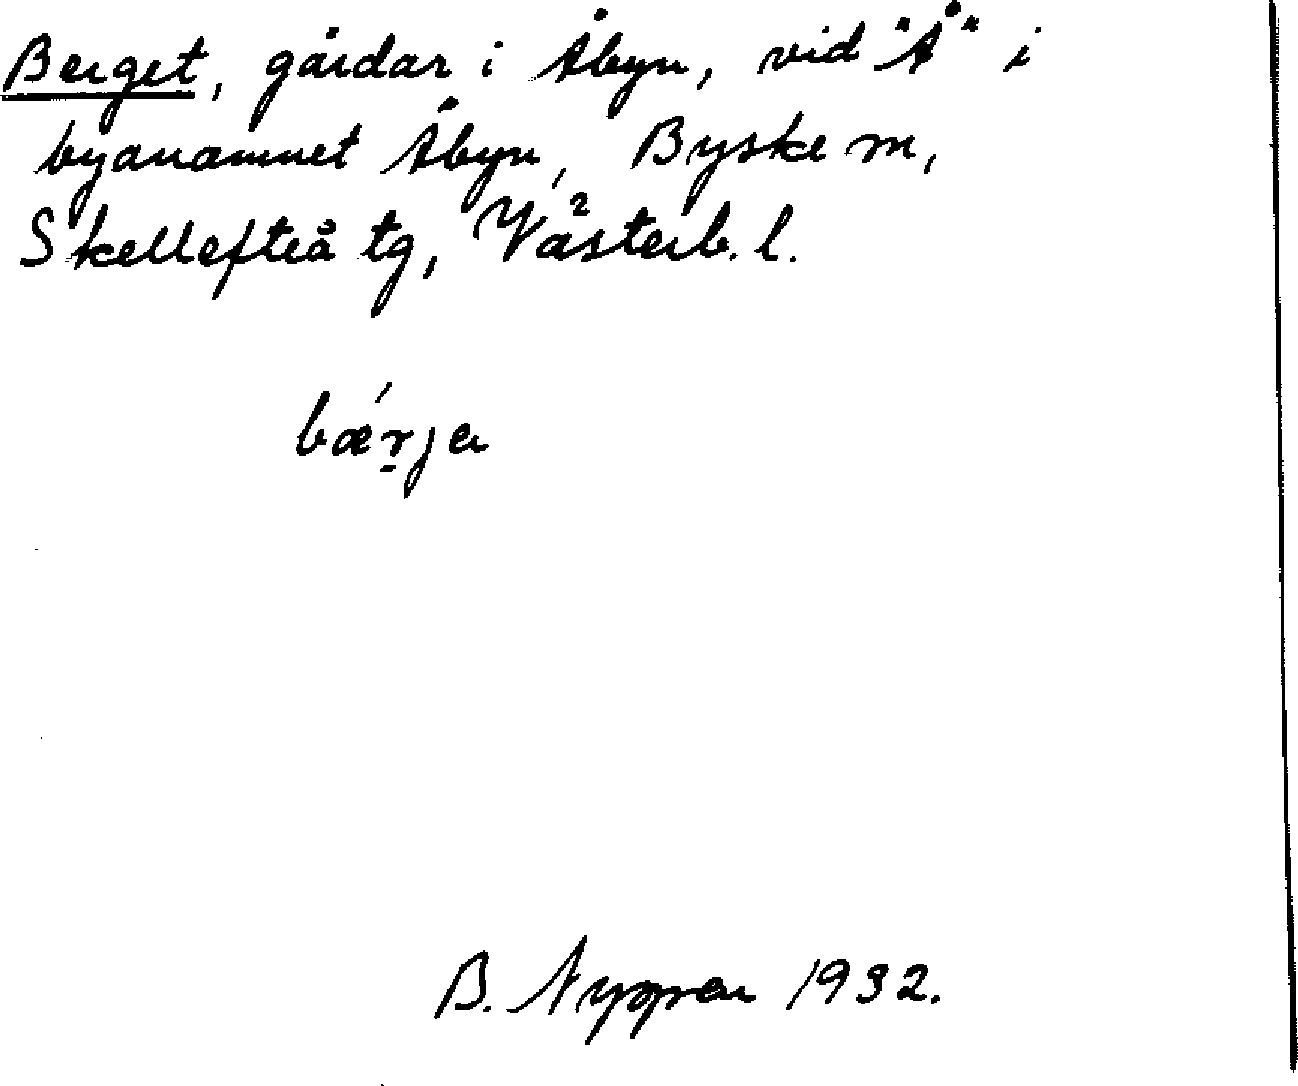 Berget, gårdar i Åbyn, vid "Å" i
byanamnet Åbyn, Byske sn,
Skellefteå tg, Västerb. l.
bǽr̠ja
B. Nygren 1932.